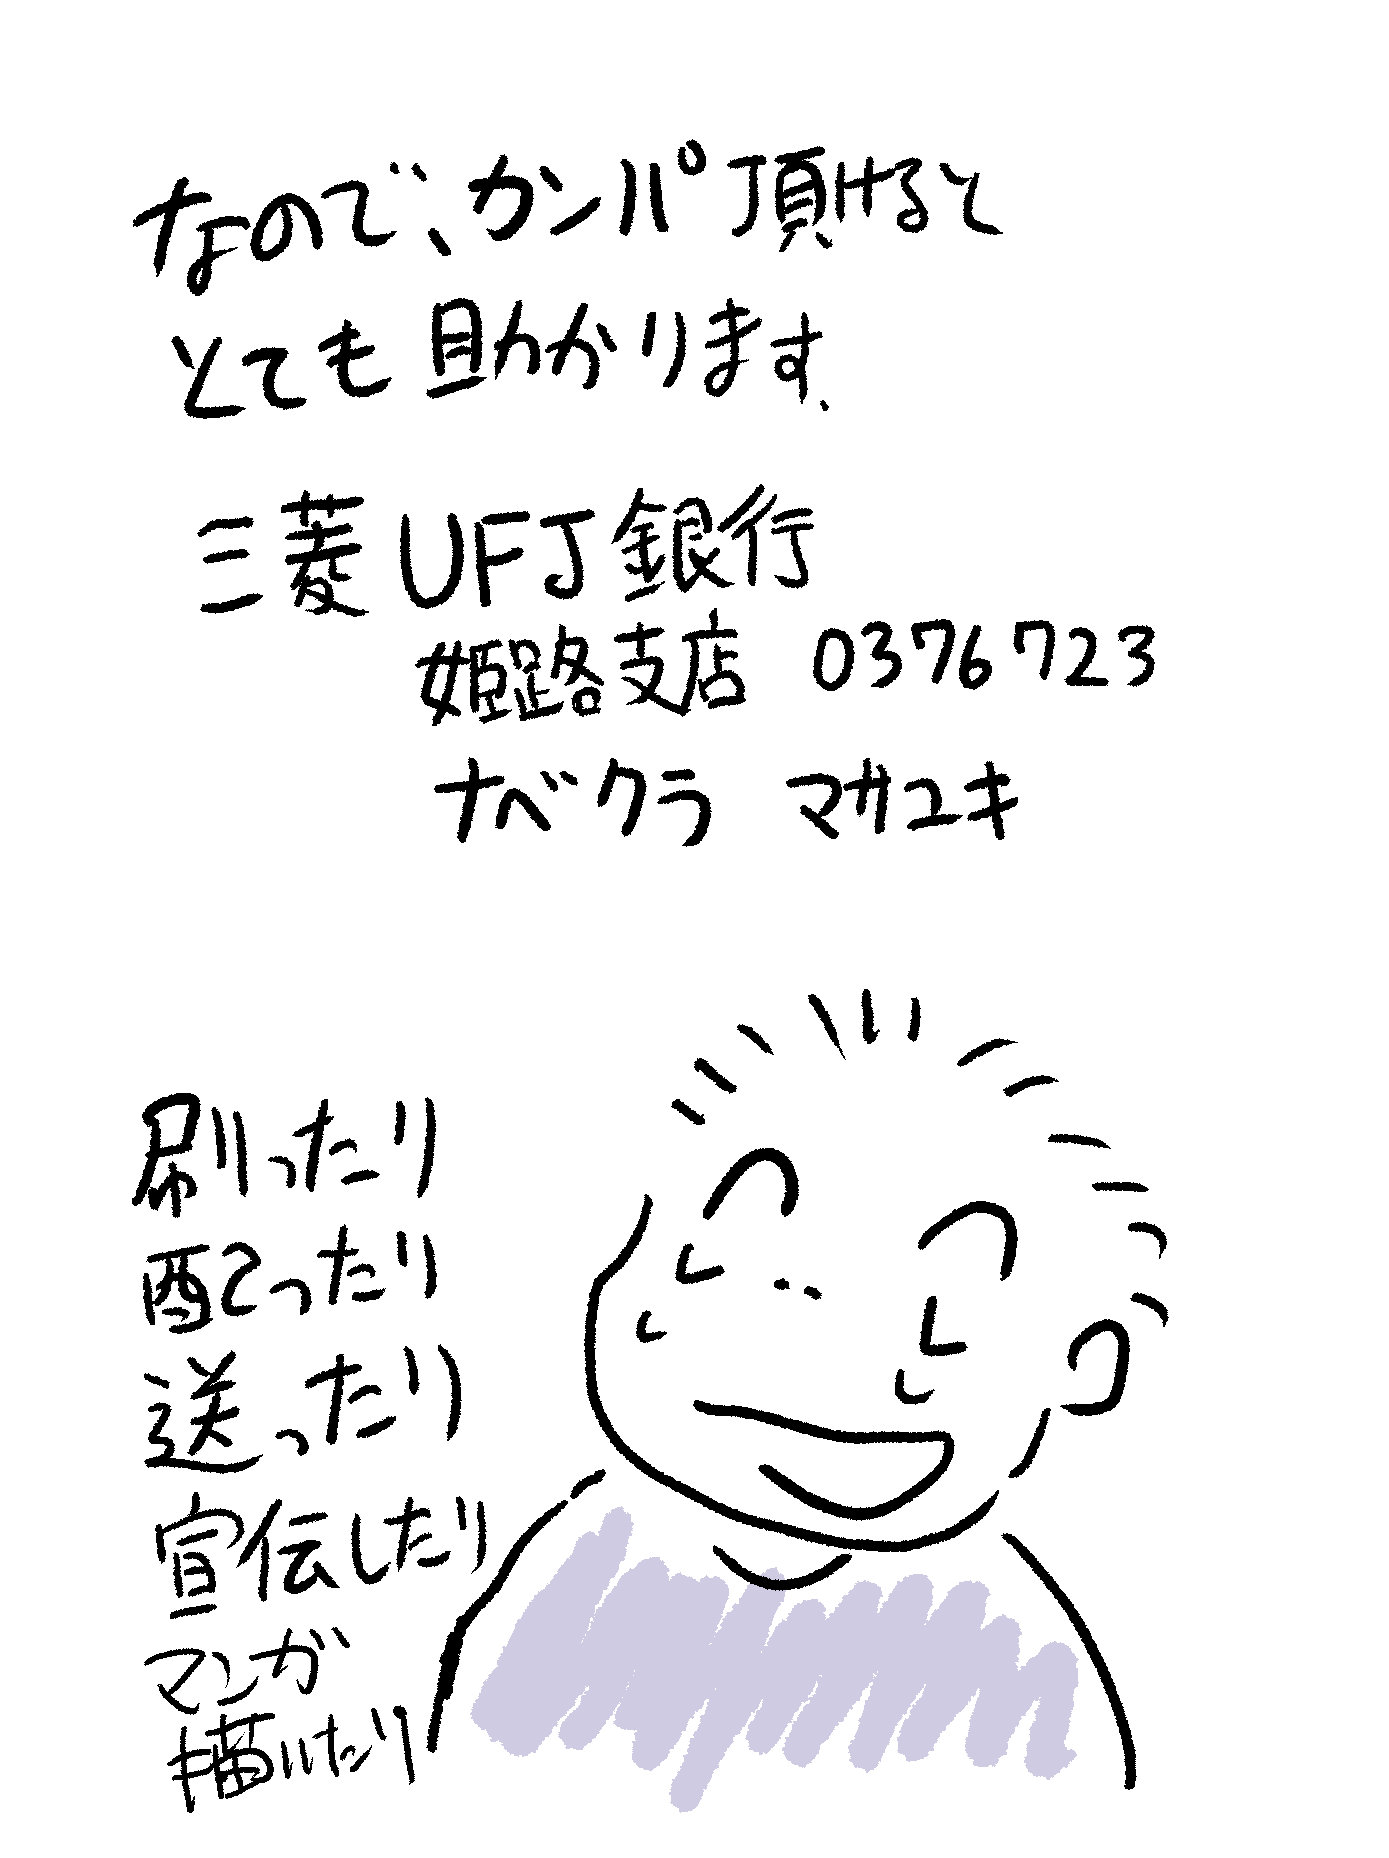 なので、カンパ頂けると
とても助かります.
三菱UFJ銀行
姫路支店 0376723
ナベクラ マサユキ
刷ったり
配ったり
送ったり
宣伝したり
マンガ
描いたり